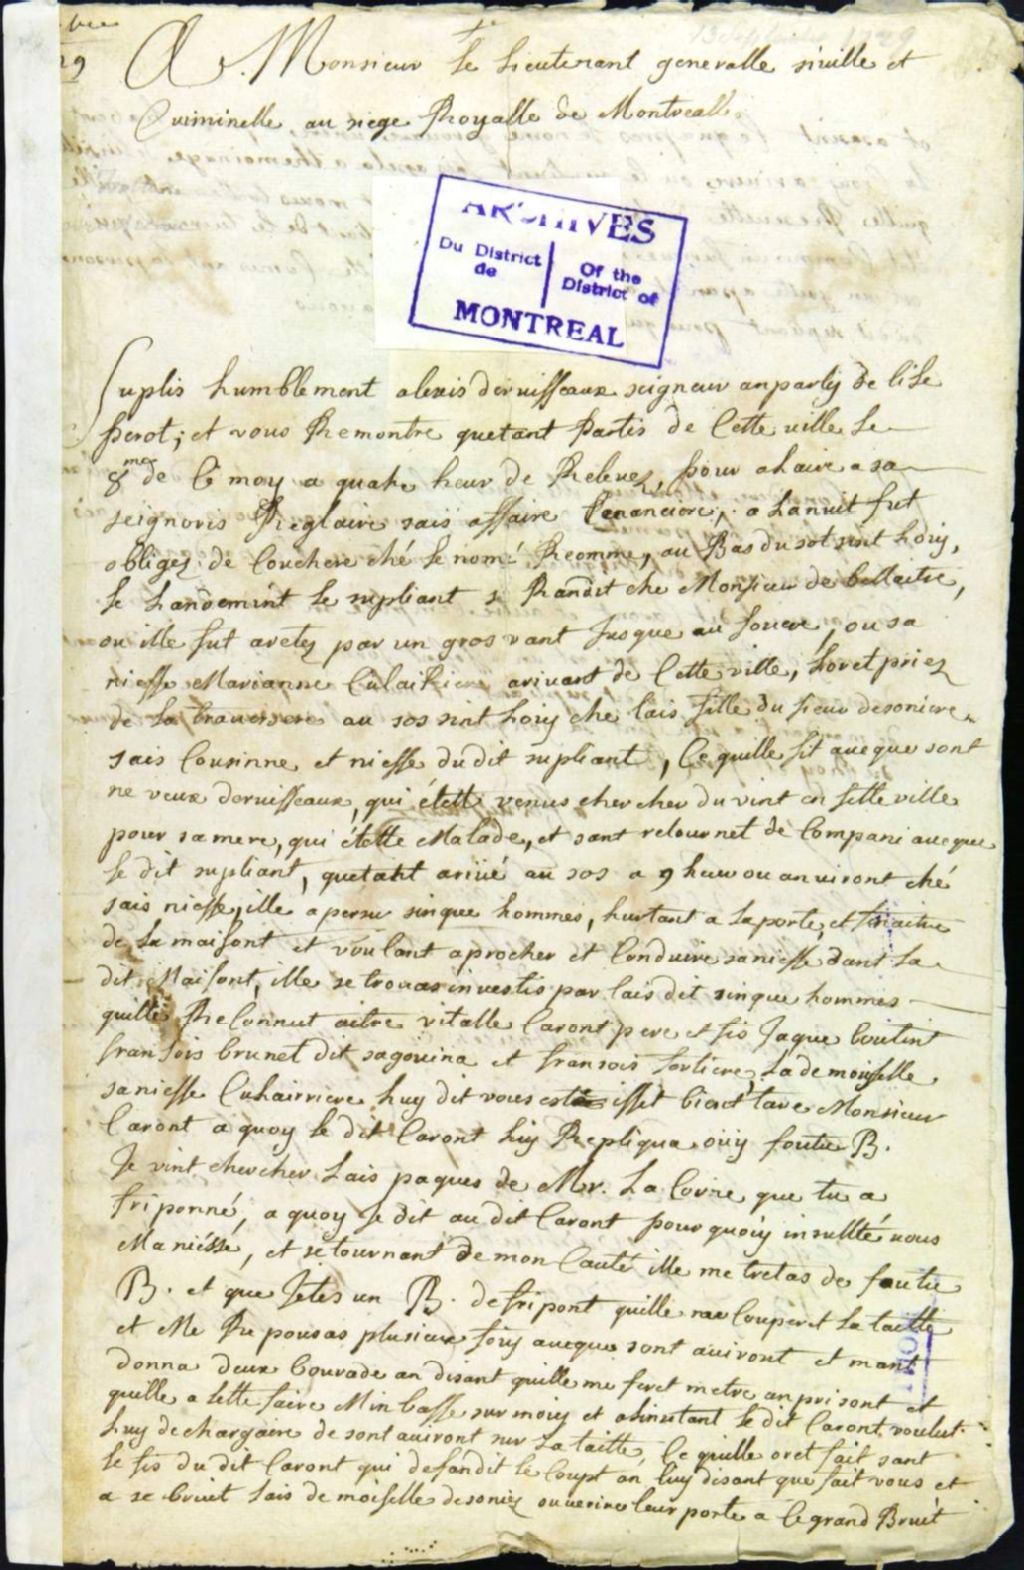 13 Septembre 1729
bre
29
A Monsieur le Lieutenant generalle siville et
Criminelle au siege Royalle de Montreall.
ARCHIVES
Du District de
Of the District of
MONTREAL
Suplis humblement alexis deruisseaux seigneur anpartiy de lile
perot; et vous Remontre quetant Partis de Cette ville le
8me de Ce moy a quatre heur de Relevez, pour alaire a sa
seignoris Reglaire sais affaire, a lanuit fut
obligez de Couchere ché le nomé Reomme, au Bas du sot sint loüy,
le landemint le supliant s Randit che Monsieur de bellaitre,
ou ille fut aretez par un gros vant Jusque au souere, ou sa
niesse Marianne Culairiere arivant de Cette ville, loret priez
de la traversere au sos sint loüy che lais fille du sieur desoniere
sais Cousinne et niesse dudit supliant, Ce quille fit aveque sont
neveux deruisseaux, qui étett venus chercher du vint en sette ville
pour sa mere, qui étette Malade, et sant retournet de Compani aveque
le dit supliant, quetant arivé au sos a 9 heur ou anviront ché
sais niesse, ille apersu sinque hommes, hurtant a la porte, et
de la maisont et voulant aprocher et Conduire saniesse dant la
dit Maisont, ille se trouas investis par lais dit sinque hommes
quille Reconnut aitre vitalle Caront pere et fis Jaque Coutint
fransois brunet dit sagouina et fransois fortiere, la demoiselle
saniesse Cuhairriere luy dit vous isset bient tare Monsieur
Caront a quoy le dit Caront luy Repliqua oüy foutue B.
Je vint chercher lais paques de Mr. La Corne que tu a
friponné, a quoy Je dit au dit Caront pour quoiy insultté vous
Ma niésse, et se tournant de mon Cauté ille me tretas de foutu
B. et que Jetes un B. de fripont quille me Couperet la taitte
et Me Repousas plusieur foiy aveque sont aviront et mant
donna deux bourade an disant quille me feret metre an prisont et
quille a lette faire Min basse sur moiy et alinstant le dit Caront voulut
luy dechargaire de sont aviront sur la taitte, Ce quille oret fait sant
le fis du dit Caront qui defandit le Coupt an luy disant que fait vous et
a se bruit lais demoiselle desoniez ouverire leur porte a Ce grand Bruit